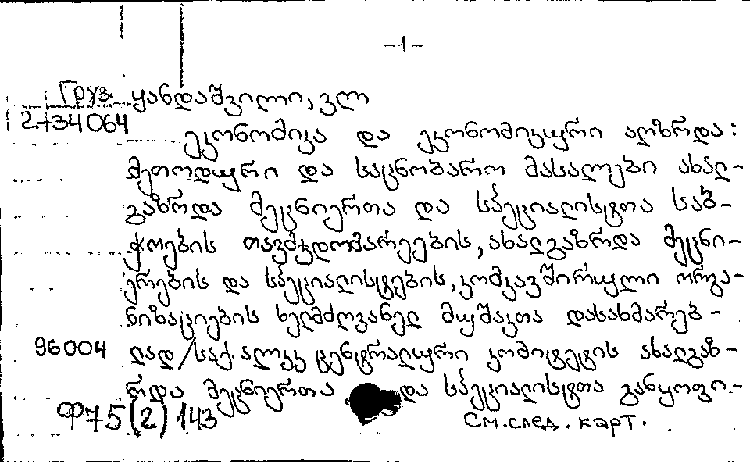 -1-
Груз. ყანდაშვილი, ვლ
2-34064
ეკონომიკა და ეკონომიკური აღზრდა:
მეთოდური და საცნობარო მასალები ახალ-
გაზრდა მეცნიერთა და სპეციალისტთა საბ-
ჭოების თავმჯდომარეების, ახალგაზრდა მეცნი-
ერების და სპეციალისტების, კომკავშირული ორგა-
ნიზაციების ხელმძღვანელ მუშაკთა დასახმარებ-
96004 ლად /საქ. ალკკ ცენტრალური კომიტეტის ახალგაზ-
რდა მეცნიერთა და სპეციალისტთა განყოფი-
Ф75(2)143 См. след. карт.